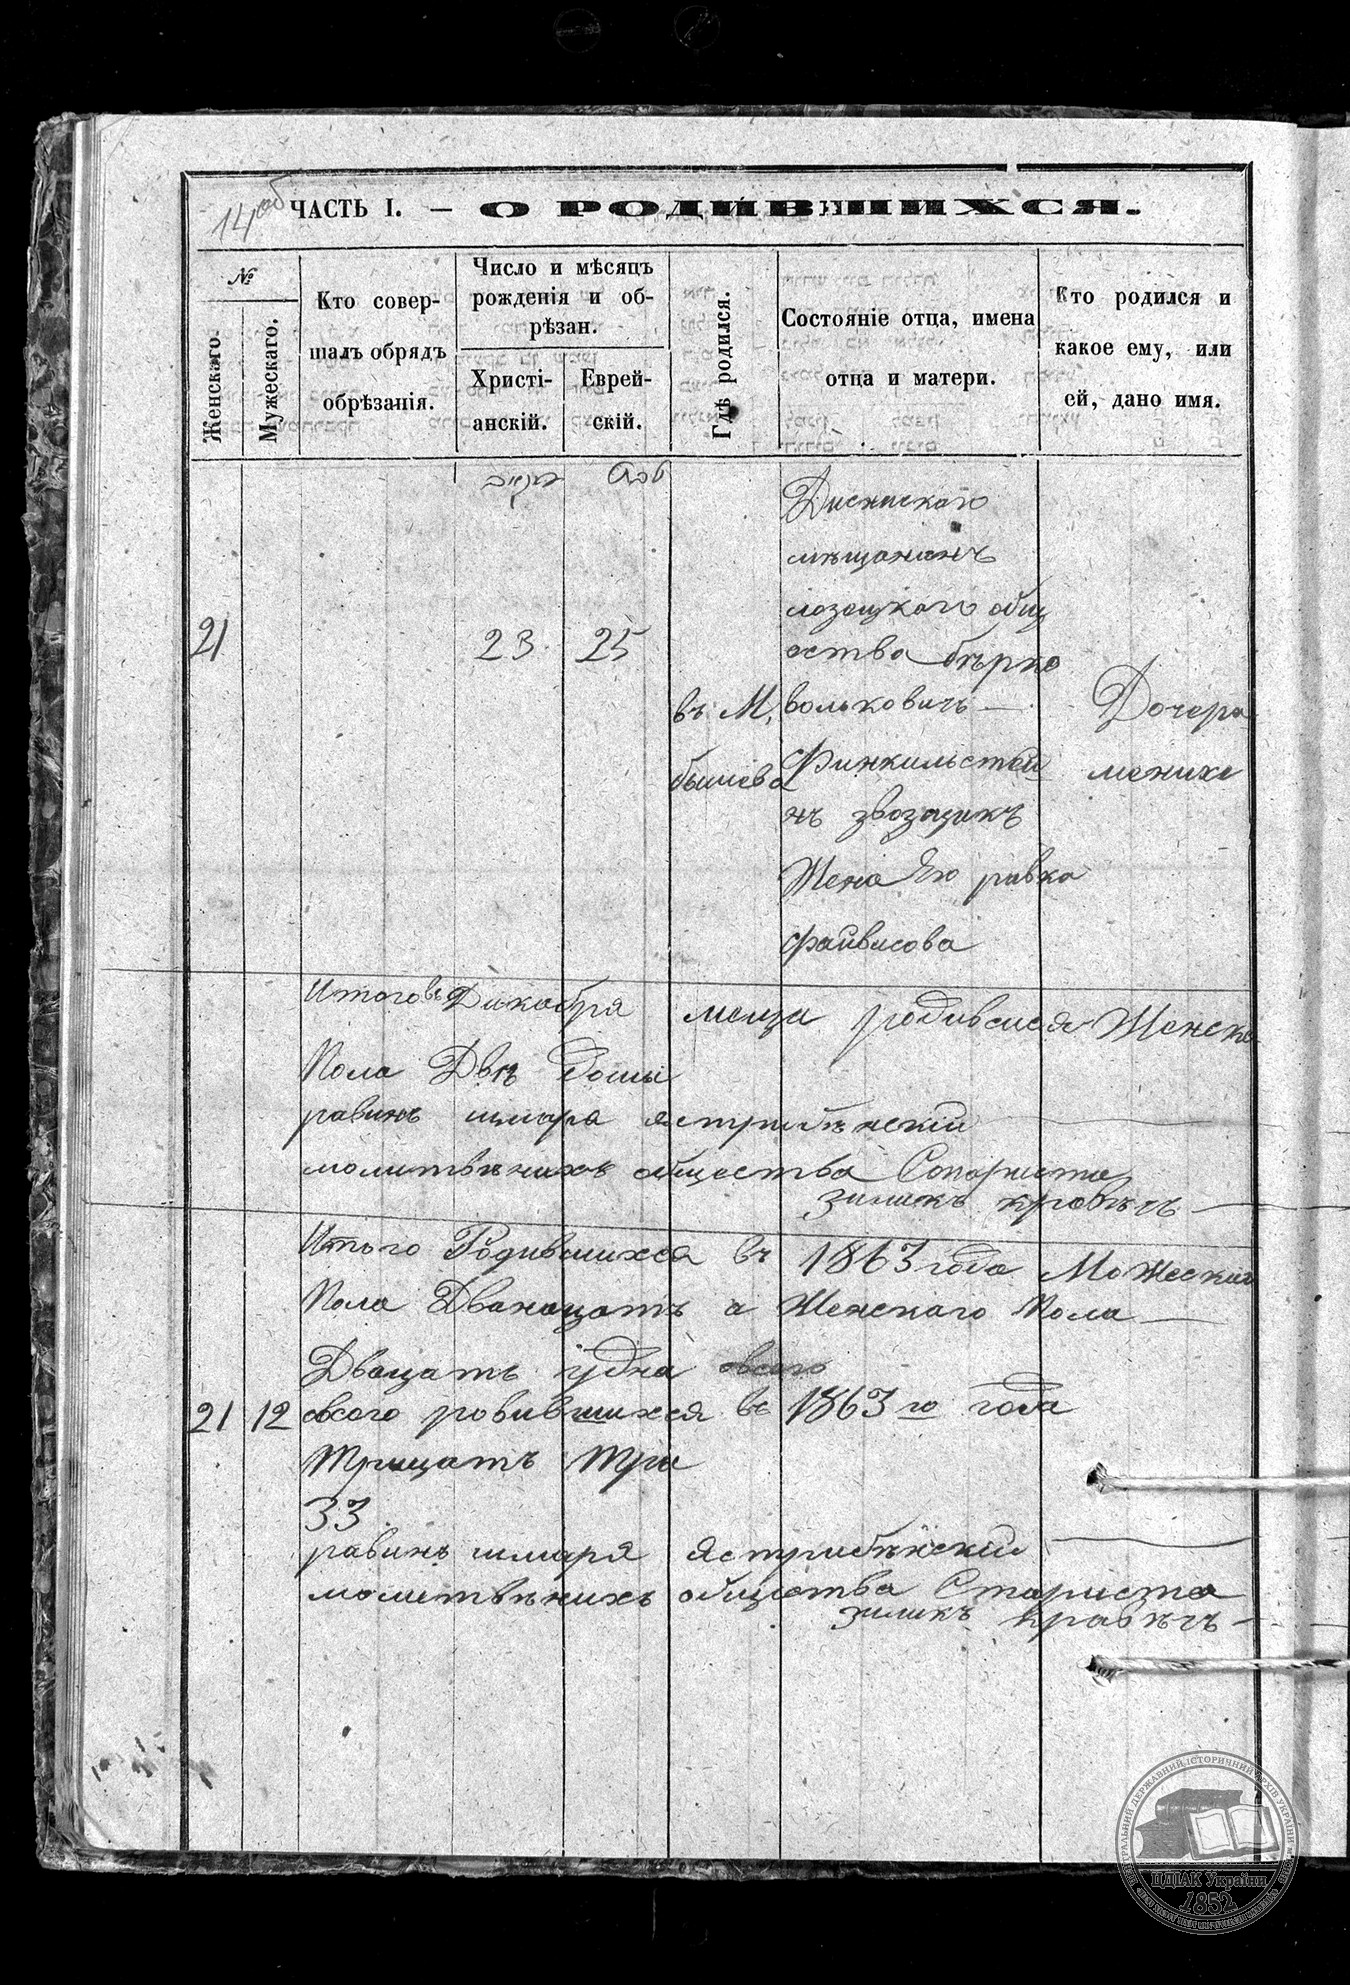 14об
ЧАСТЬ I. — О РОДИВШИХСЯ.
№
Женскаго.
Мужескаго.
Кто совер-
шалъ обрядъ
обрѣзанія.
Число и мѣсяцъ
рожденія и об-
рѣзан.
Христі-
анскій.
Еврей-
скій.
Гдѣ родился.
Состояніе отца, имена
отца и матери.
Кто родился и
какое ему, или
ей, дано имя.
21
23
25
въ М.
бышева
мѣщанинъ
лозоцкаго общ
ества бѣрко
вольковичъ —
Финкильстей
нъ звозчикъ
Жена Его ривка
файвисова
Дочера
менихе
Итого въ Дикабря месца родившися Женска
Пола Двѣ Душы
равинъ шмара ястрибѣнскій
молитвѣнихъ общества
зиликъ кровѣчъ —
Итого Родившихся въ 1863 года Можескаго
Пола Дванацать а Женскаго Пола —
Двацать удна
21 12 овсого ровившихся въ 1863 го года
Трицать Три
33
равинъ шмаря ястрибѣнский
молитвѣнихъ общества Стариста
зиликъ кравѣчъ —
ЦЕНТРАЛЬНИЙ ДЕРЖАВНИЙ ІСТОРИЧНИЙ АРХІВ УКРАЇНИ
ЦДІАК України
1852